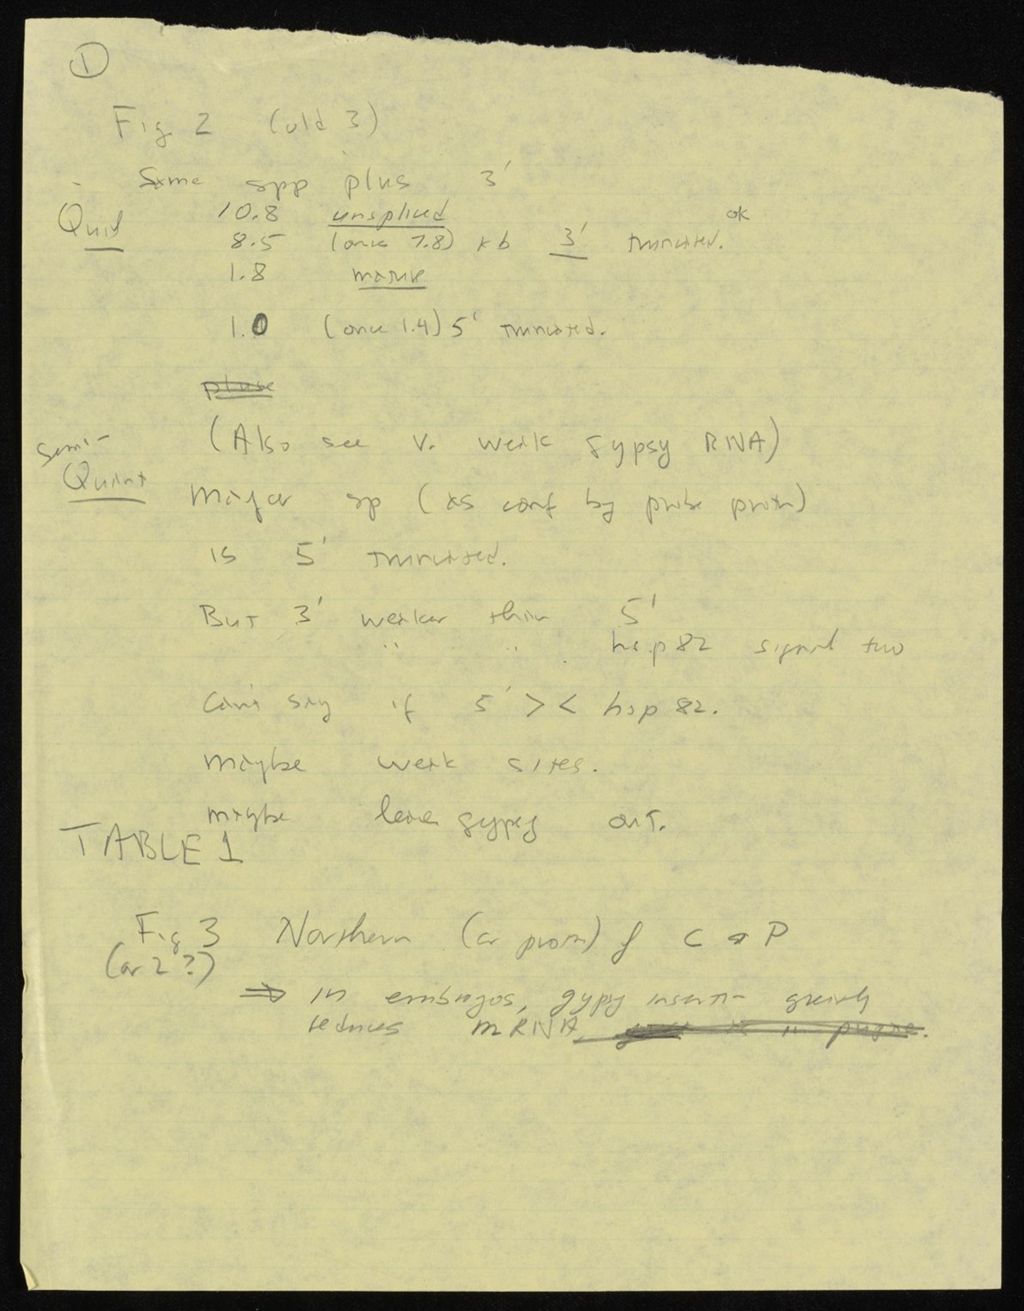 1
Fig 2 (old 3)
Some spp plus 3'
10.8 unspliced
Qual 8.5 (once 7.8) kb 3' truncated. ok
1.8 mature
1.0 (once 1.4) 5' truncated.
(Also see v. weak gypsy RNA)
Semi-
Quant Major sp (as conf by probe protn)
is 5' truncated.
But 3' weaker than 5'
" " hsp82 signal two
Can't say if 5' > < hsp 82.
Maybe weak sites.
Maybe leave gypsy out.
TABLE 1
Fig 3 Northern (or protn) of C & P
(or 2?)
⇒ In embryos, gypsy insertn greatly
reduces mRNA